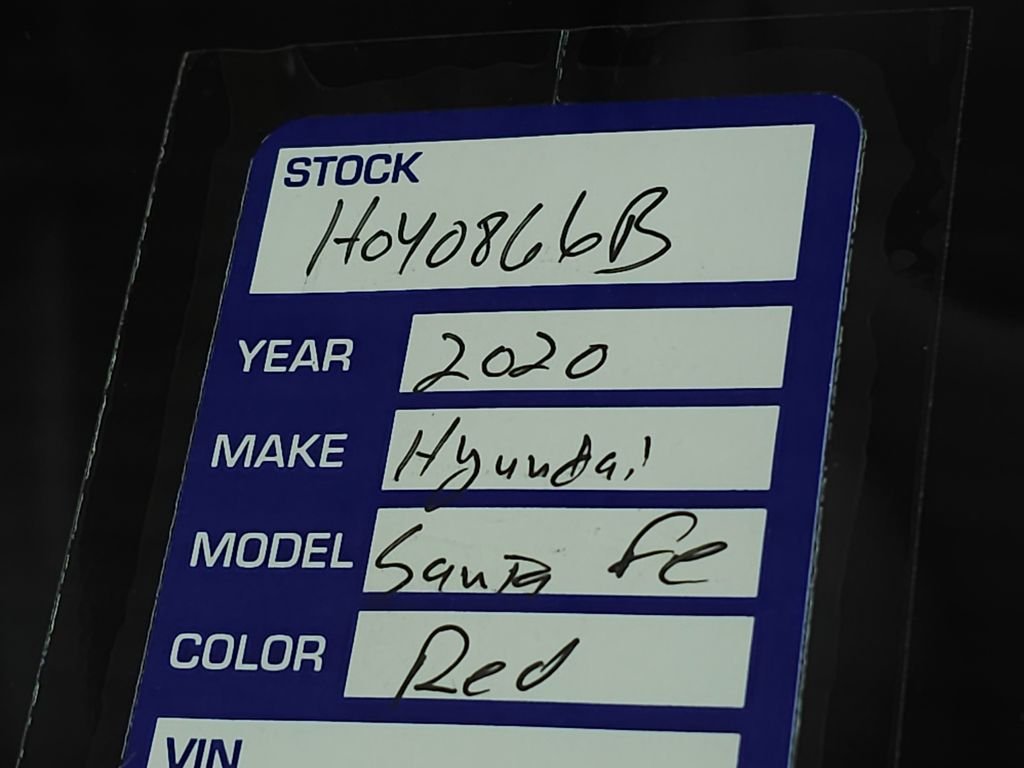 STOCK
HOY0866B
YEAR 2020
MAKE Hyundai
MODEL Santa Fe
COLOR Red
VIN